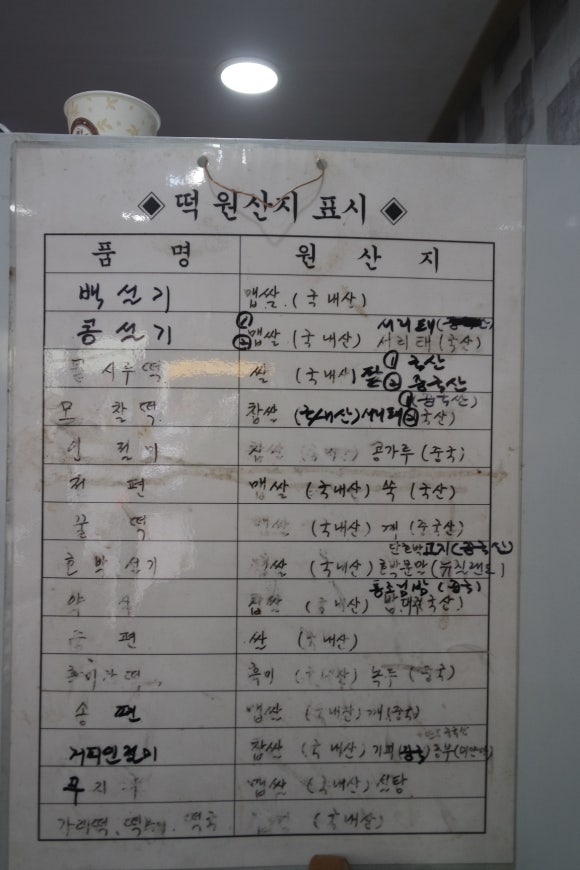 ◈ 떡 원산지 표시 ◈
품 명 원 산 지
백 설 기 맵쌀 (국내산)
콩 설 기 ① 서리태
② 맵쌀 (국내산) 서리태 (국산)
시루 떡 쌀 (국내산) 팥 ① 국산
② 중국산
모 찰떡 찹쌀 (국내산) 서리태 ① (중국산)
② 국산)
찹쌀 콩가루 (중국)
편 맵쌀 (국내산) 쑥 (국산)
꿀 떡 맵쌀 (국내산) 깨 (중국산)
단호박고지 (중국산)
호박설기 맵쌀 (국내산) 호박분말 (뉴질랜드)
통조림밤 (중국)
약 찹쌀 밤, 대추 국산)
편 쌀 (국내산)
떡 흑미 (국내산) 녹두 (중국)
송 편 맵쌀 (국내산) 깨 (중국)
거피인절미 찹쌀 (국내산) 기피 (중국)
무지 맵쌀 (국내산) 설탕
가래떡, 떡국 (국내산)